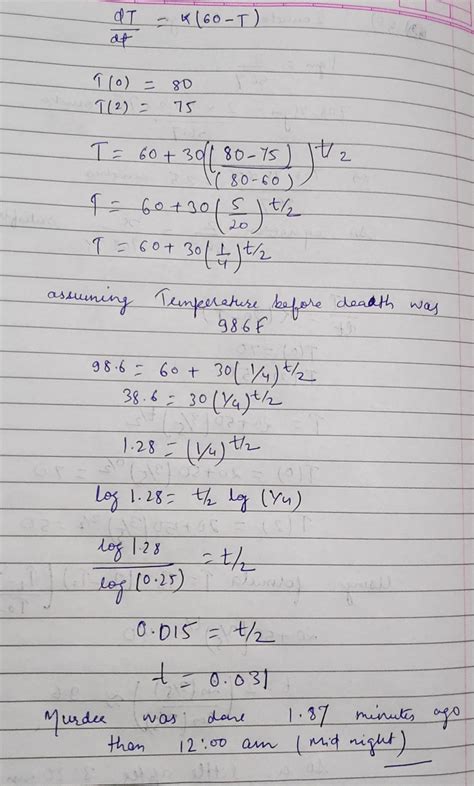 dT/dt = K(60-T)
T(0) = 80
T(2) = 75
T = 60 + 30((80-75)/(80-60))^t/2
T = 60+30(5/20)^t/2
T = 60+30(1/4)^t/2
assuming Temperature before death was
986F
98.6 = 60 + 30(1/4)^t/2
38.6 = 30(1/4)^t/2
1.28 = (1/4)^t/2
log 1.28 = t/2 log (1/4)
log 1.28/log(0.25) = t/2
0.015 = t/2
t = 0.031
Murdee was done 1.87 minutes ago
than 12:00 am (mid night)